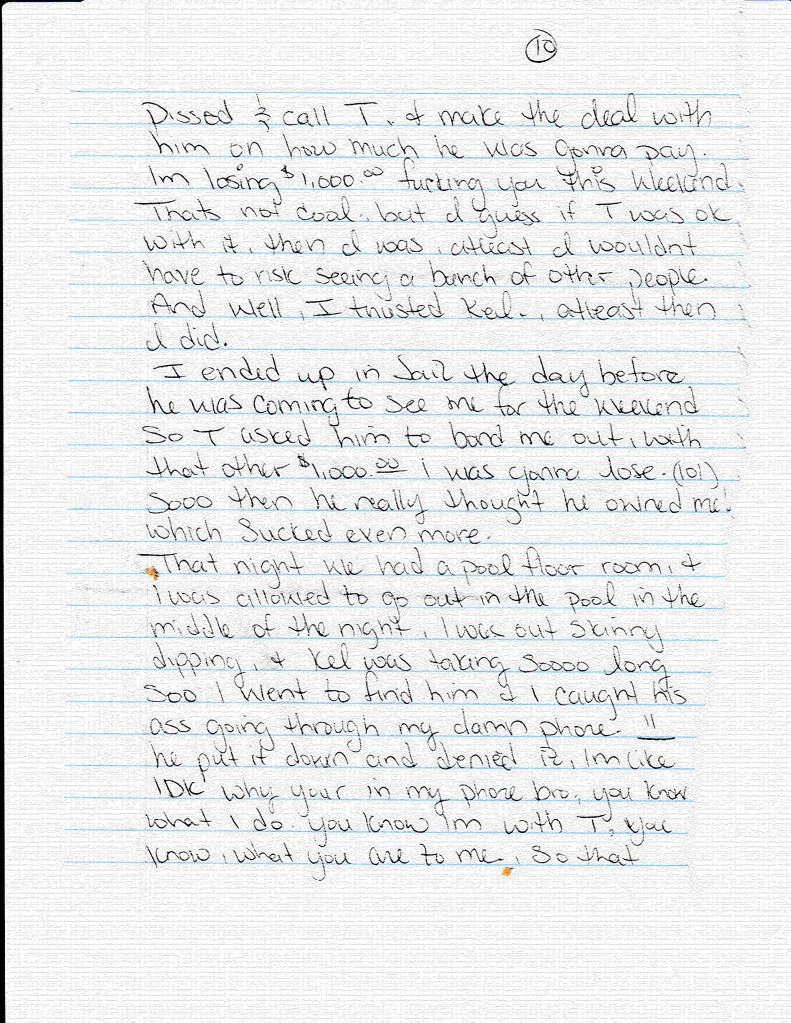 10
Pissed & call T. & make the deal with
him on how much he was gonna pay.
Im losing $1,000.00 fucking you this weekend.
Thats not cool. but I guess if T was ok
with it, then I was, atleast I wouldnt
have to risk seeing a bunch of other people.
And well, I trusted Kel., atleast then
I did.
I ended up in Jail the day before
he was coming to see me for the weekend
So T asked him to bond me out, with
that other $1,000.00 i was gonna lose. (lol)
Sooo then he really thought he owned me!
which Sucked even more.
That night we had a pool floor room, &
i was allowed to go out in the pool in the
middle of the night, I was out skinny
dipping, & Kel was taking Soooo long
Soo I went to find him & I caught his
ass going through my damn phone !!
he put it down and denied it, Im like
IDK why your in my phone bro, you know
what I do. you know Im with T, you
know, what you are to me., So that